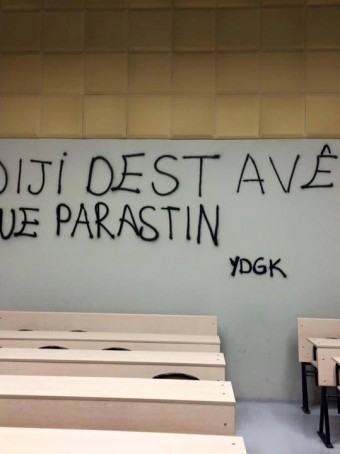 DIJI DEST AVÊ
UE PARASTIN
YDGK